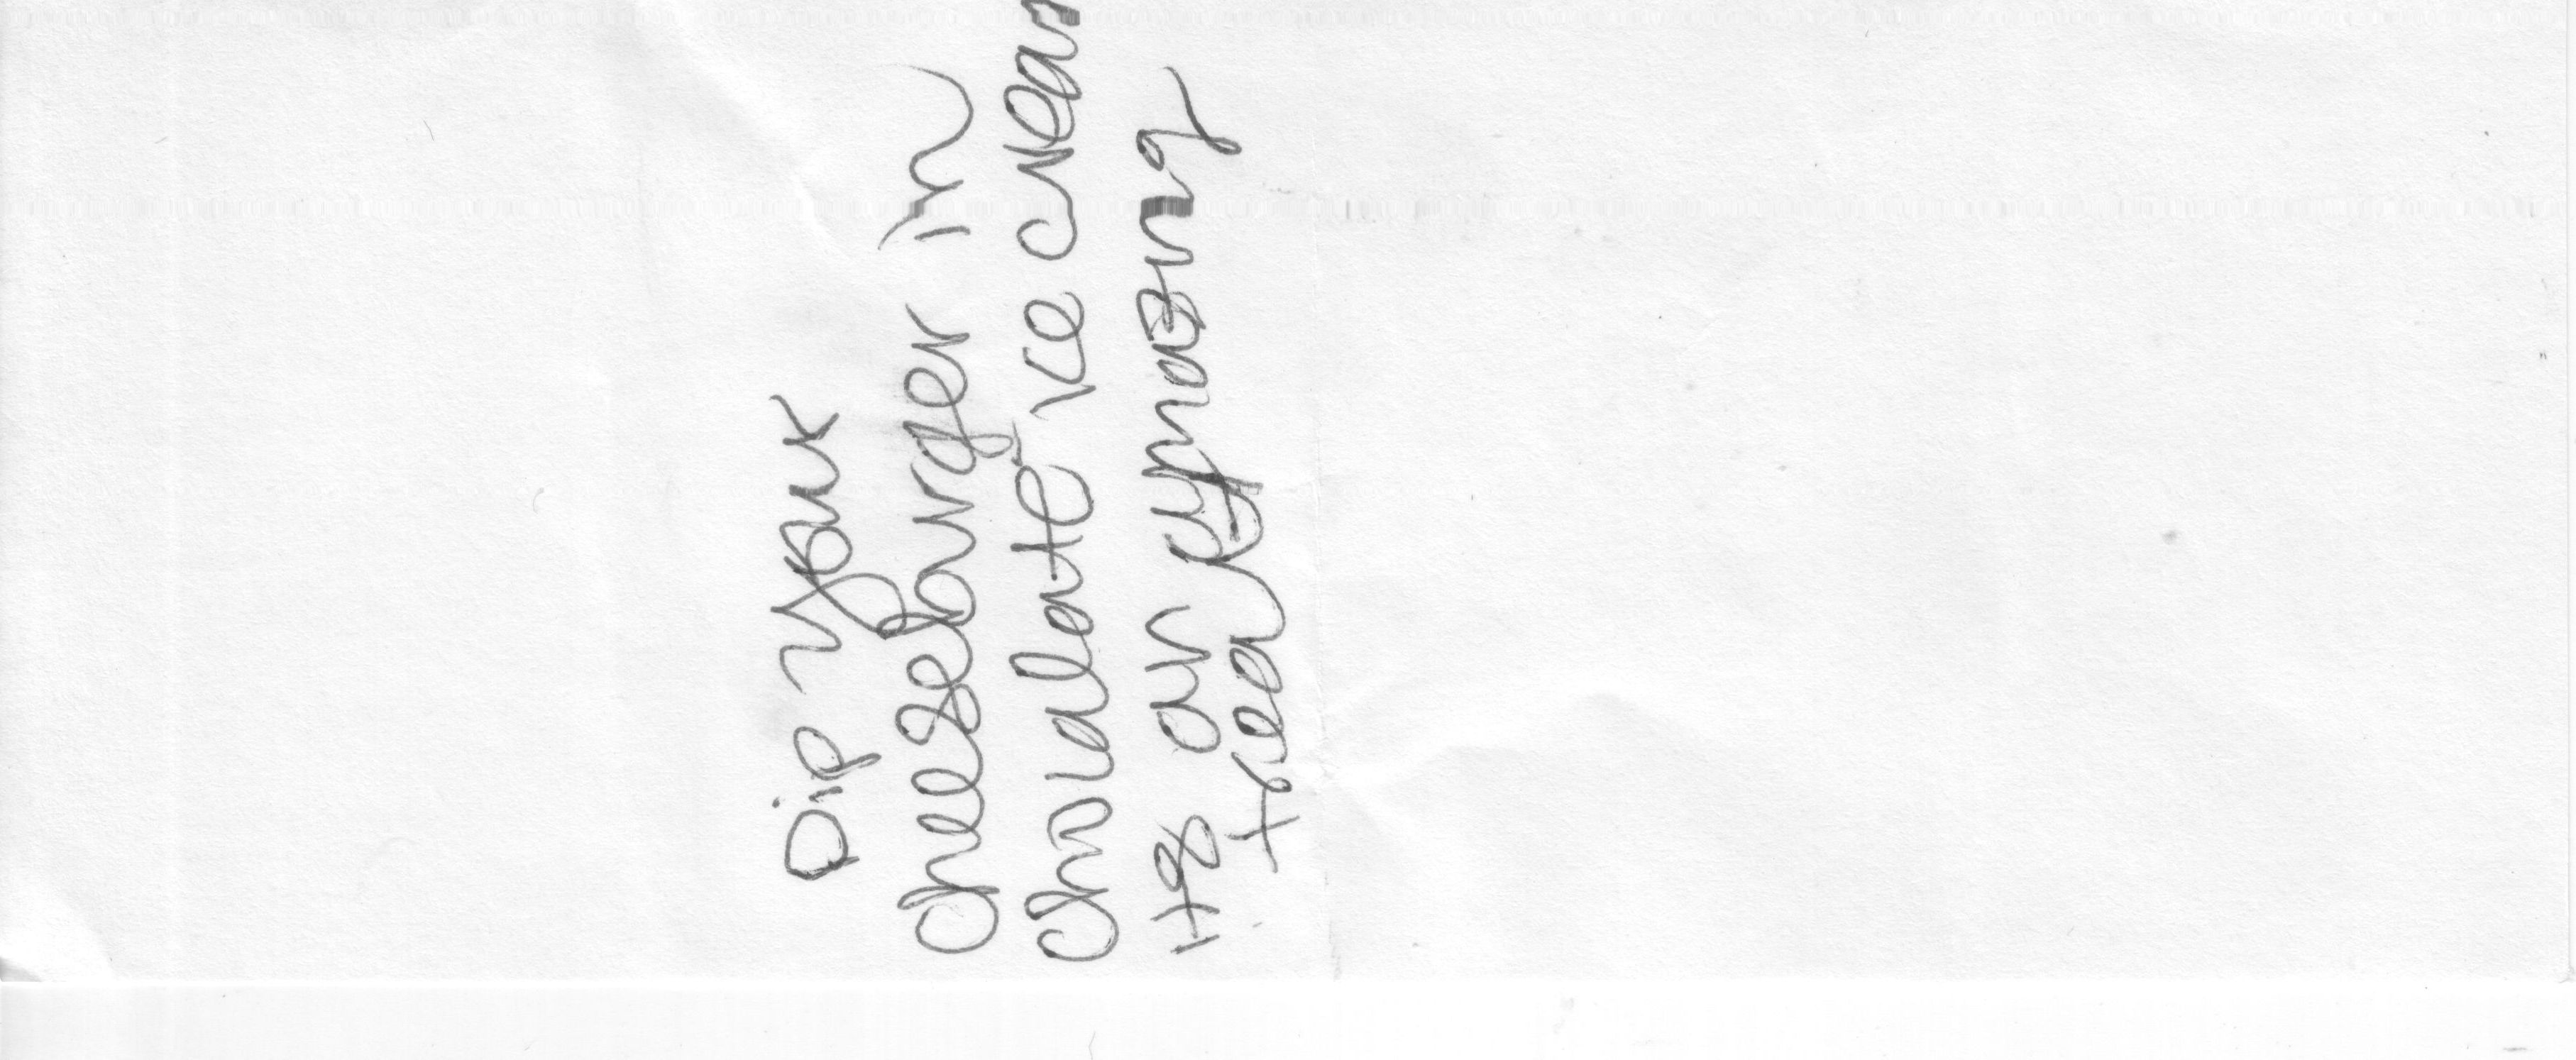 Dip your
cheeseburger in
chocolate ice cream
its an amazing
treat